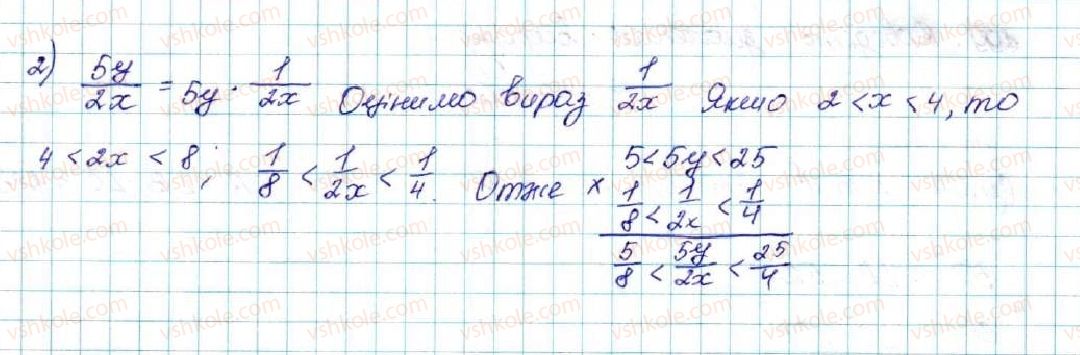 2) 5y/2x = 5y · 1/2x Оцінимо вираз 1/2x Якщо 2 < x < 4, то
4 < 2x < 8; 1/8 < 1/2x < 1/4. Отже × 5 < 5y < 25
1/8 < 1/2x < 1/4
5/8 < 5y/2x < 25/4